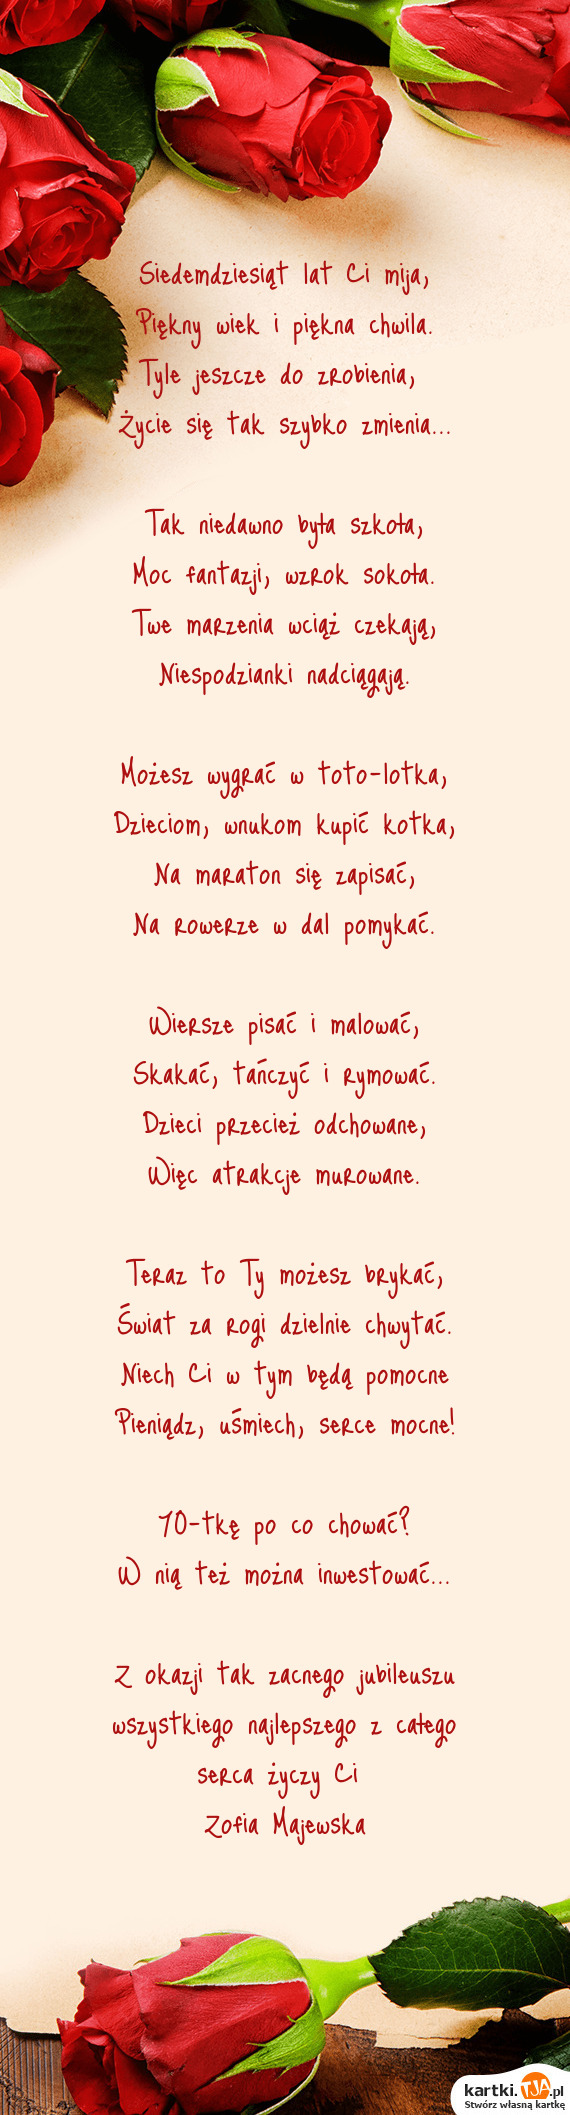 Siedemdziesiąt lat Ci mija,
Piękny wiek i piękna chwila.
Tyle jeszcze do zrobienia,
Życie się tak szybko zmienia...
Tak niedawno była szkoła,
Moc fantazji, wzrok sokoła.
Twe marzenia wciąż czekają,
Niespodzianki nadciągają.
Możesz wygrać w toto-lotka,
Dzieciom, wnukom kupić kotka,
Na maraton się zapisać,
Na rowerze w dal pomykać.
Wiersze pisać i malować,
Skakać, tańczyć i rymować.
Dzieci przecież odchowane,
Więc atrakcje murowane.
Teraz to Ty możesz brykać,
Świat za rogi dzielnie chwytać.
Niech Ci w tym będą pomocne
Pieniądz, uśmiech, serce mocne!
70-tkę po co chować?
W nią też można inwestować...
Z okazji tak zacnego jubileuszu
wszystkiego najlepszego z całego
serca życzy Ci
Zofia Majewska
kartki.TJA.pl
Stwórz własną kartkę